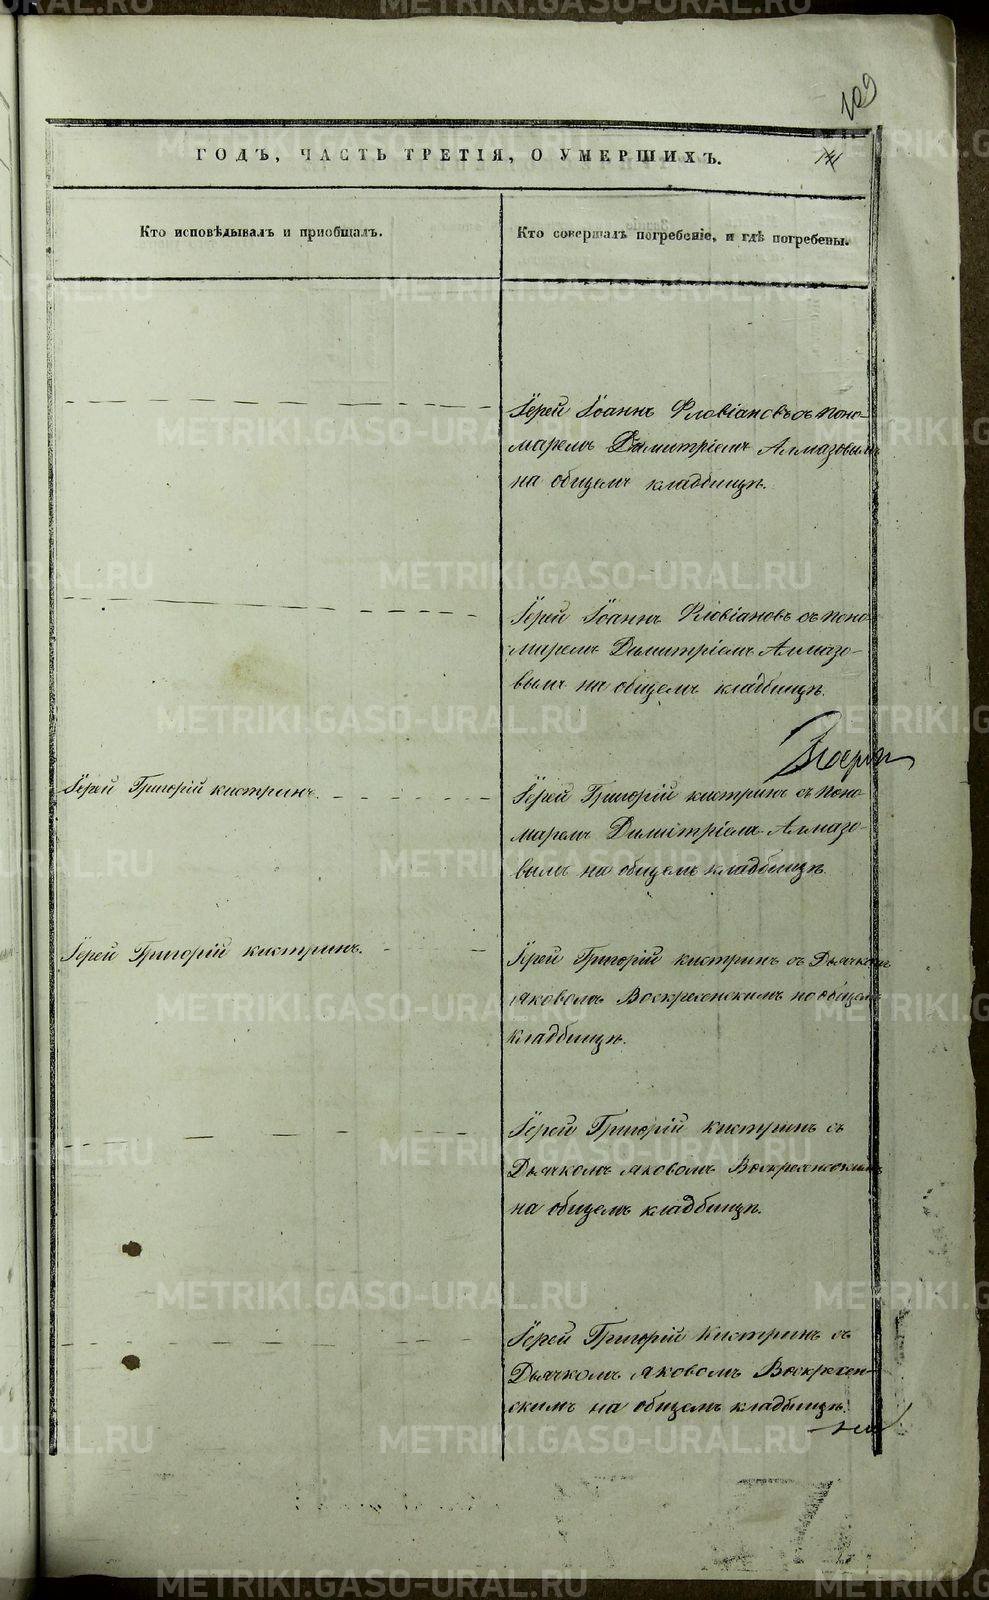 109
ГОДЪ, ЧАСТЬ ТРЕТІЯ, О УМЕРШИХЪ.
Кто исповѣдывалъ и приобщалъ.
Кто совершалъ погребеніе, и гдѣ погребены.
Іерей Іоаннъ Флавіановъ съ поно-
маремъ Димитріемъ Алмазовымъ
на общемъ кладбищѣ.
Іерей Іоаннъ Флавіановъ съ поно-
маремъ Димитріемъ Алмазо-
вымъ на общемъ кладбищѣ.
Іерей Григорій Кистринъ.
Іерей Григорій Кистринъ съ поно-
маремъ Димитріемъ Алмазо-
вымъ на общемъ кладбищѣ.
Іерей Григорій Кистринъ.
Іерей Григорій Кистринъ съ Дьячкомъ
Яковомъ Воскресенскимъ на общемъ
кладбищѣ.
Іерей Григорій Кистринъ съ
Дьячкомъ Яковомъ Воскресенскимъ
на общемъ кладбищѣ.
Іерей Григорій Кистринъ съ
Дьячкомъ Яковомъ Воскресен-
скимъ на общемъ кладбищѣ.
METRIKI.GASO-URAL.RU